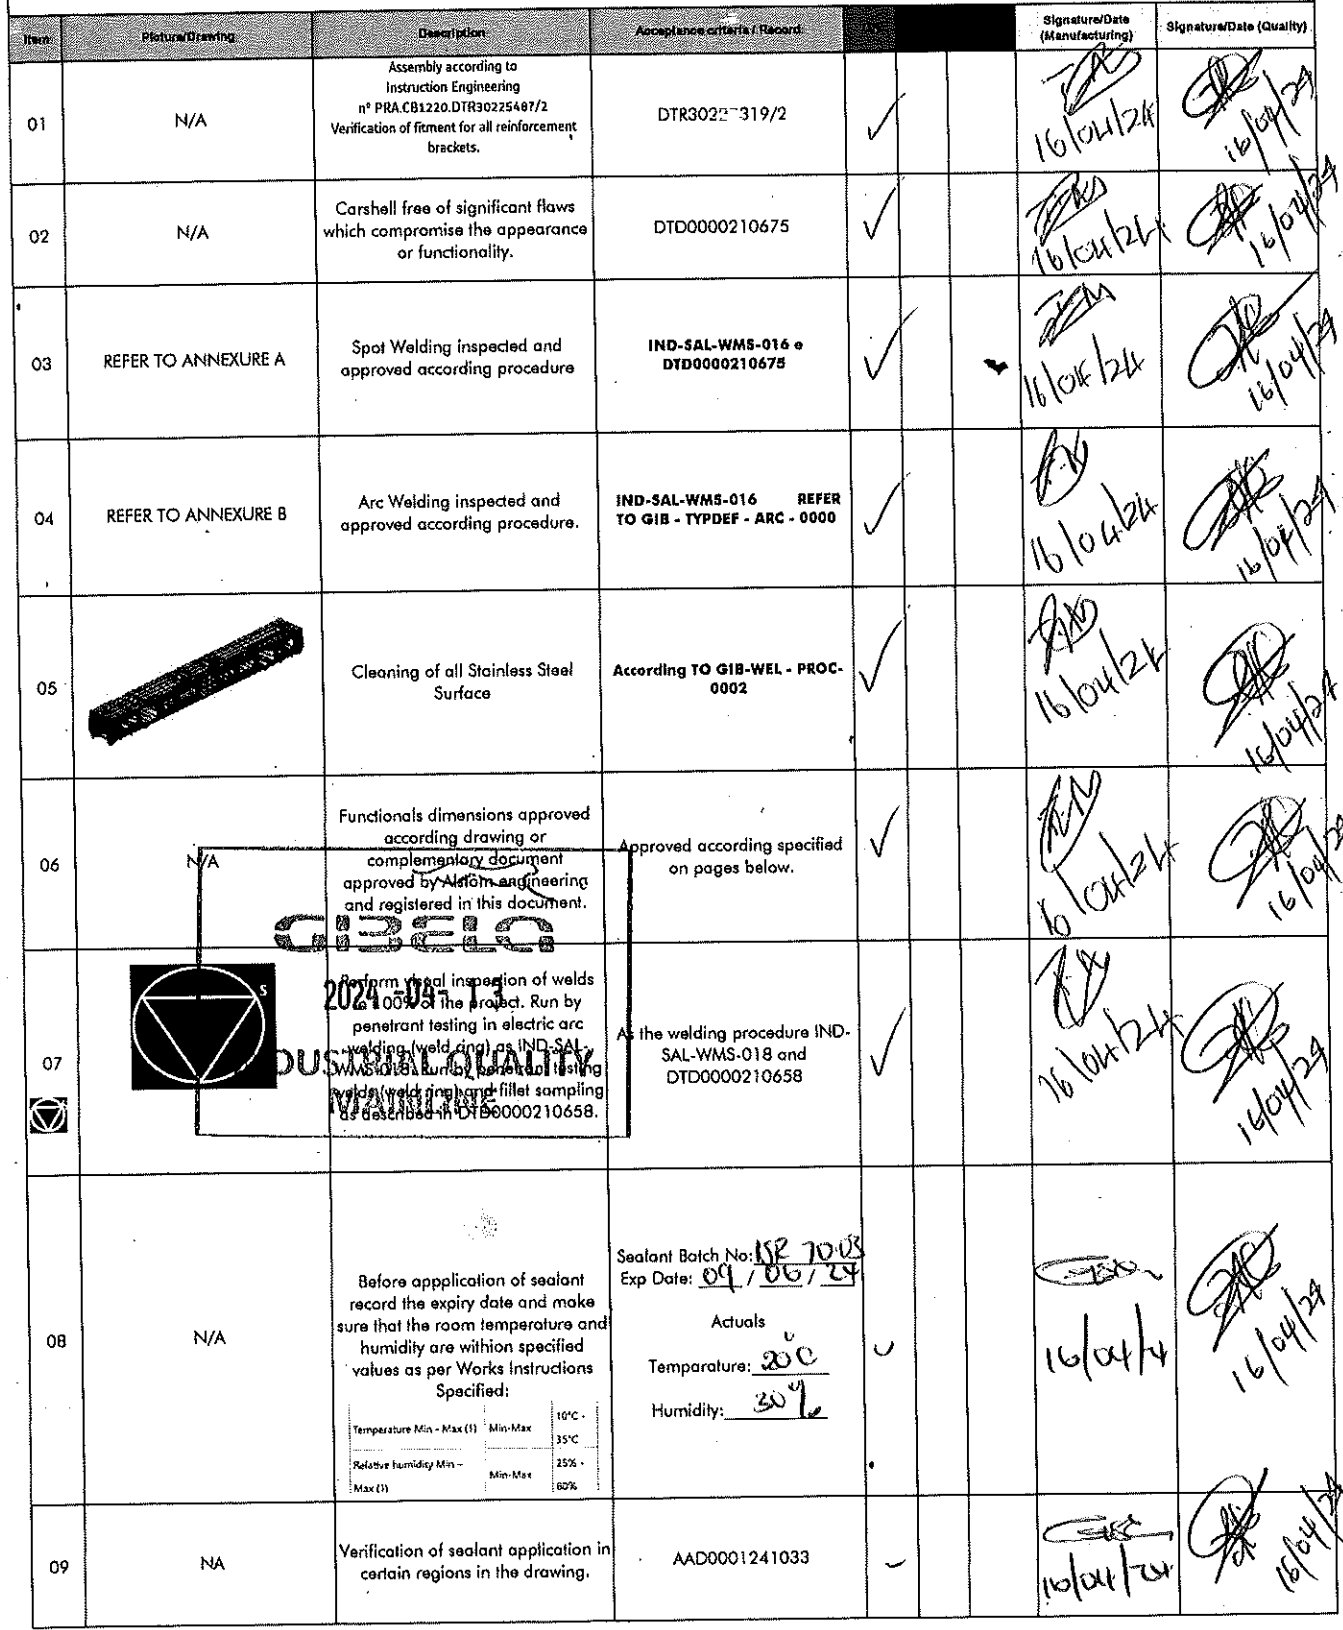 Item
Picture/Drawing
Description
Acceptance criteria / Record
Signature/Date
(Manufacturing)
Signature/Date (Quality)
01
N/A
Assembly according to
Instruction Engineering
nº PRA.CB1220.DTR30225487/2
Verification of fitment for all reinforcement
brackets.
319/2
16/04/24
16/04/24
02
N/A
Carshell free of significant flaws
which compromise the appearance
or functionality.
DTD0000210675
16/04/24
16/04/24
03
REFER TO ANNEXURE A
Spot Welding inspected and
approved according procedure
IND-SAL-WMS-016 e
DTD0000210675
16/04/24
16/04/24
04
REFER TO ANNEXURE B
Arc Welding inspected and
approved according procedure.
IND-SAL-WMS-016 REFER
TO GIB - TYPDEF - ARC - 0000
16/04/24
16/04/24
05
Cleaning of all Stainless Steel
Surface
According TO GIB-WEL - PROC-
0002
16/04/24
16/04/24
06
N/A
Functionals dimensions approved
according drawing or
complementary document
approved by Alstom engineering
and registered in this document.
Approved according specified
on pages below.
16/04/24
16/04/24
GIBELA
2024 -04- 13
INDUSTRIAL QUALITY
MAINLINE
07
S
Perform visual inspection of welds
100% of the project. Run by
penetrant testing in electric arc
welding (weld ring) as IND-SAL-
WMS-018. Run by penetrant testing
welds (weld ring) and fillet sampling
as described in DTD0000210658.
As the welding procedure IND-
SAL-WMS-018 and
DTD0000210658
16/04/24
16/04/24
08
N/A
Before appplication of sealant
record the expiry date and make
sure that the room temperature and
humidity are withion specified
values as per Works Instructions
Specified:
Temperature Min - Max (1) Min-Max 10°C -
35°C
Relative humidity Min -
Max (1) Min-Max 25% -
60%
Sealant Batch No: ISR 70-03
Exp Date: 09 / 06 / 24
Actuals
Temparature: 20°C
Humidity: 30%
16/04/4
16/04/24
09
NA
Verification of sealant application in
certain regions in the drawing.
AAD0001241033
16/04/24
16/04/24